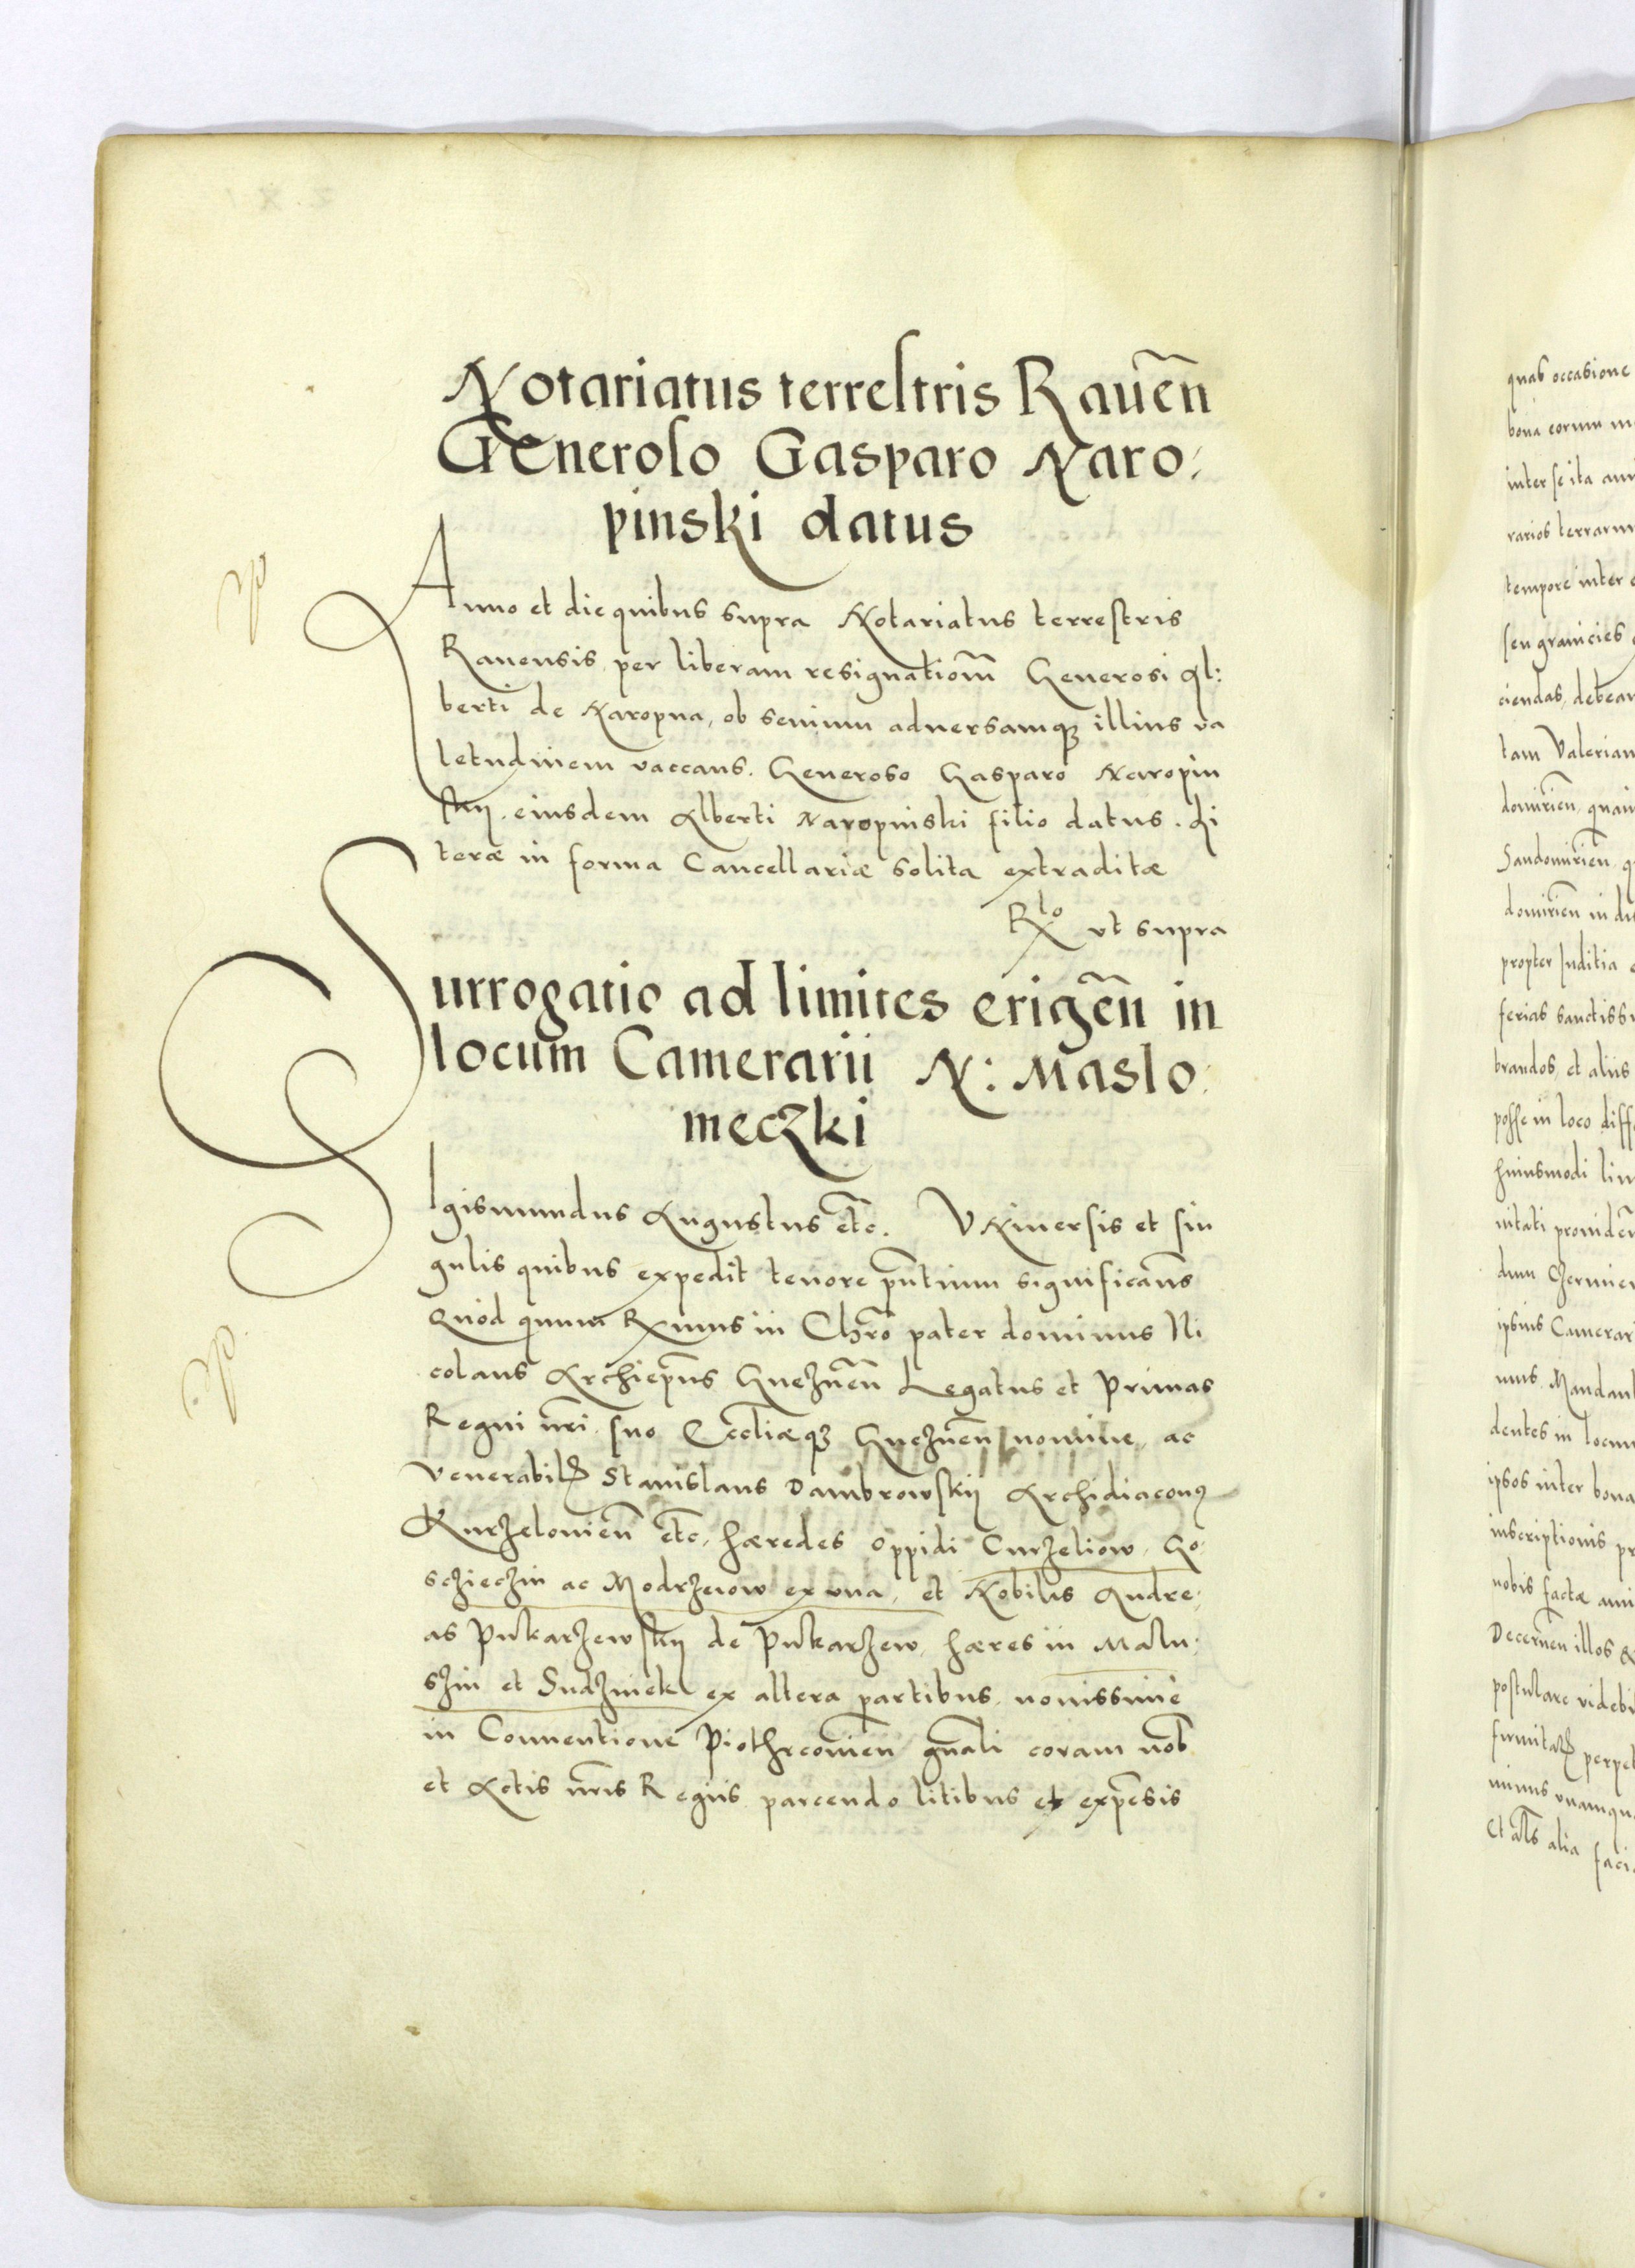 Notariatus terrestris Rauen̄
Generoso Gasparo Naro:
pinski datus
Anno et die quibus supra Notariatus terrestris
Rauensis per liberam resignation̄m Generosi Al:
berti de Naropna, ob senium aduersamqꝫ illius va
letudinem vaccans. Generoso Gasparo Naropin
skij. eiusdem Alberti Naropinski filio datus. Li
teræ in forma Cancellariæ solita extraditæ
Rlo vt supra
Surrogatio ad limites erigen̄ in
locum Camerarii N: Maslo:
meczki
Sigismundus Augustus etc. Vniuersis et sin
gulis quibus expedit tenore pn̄tium significam̄s
Quod quum Rx̄mus in Chr̄o pater dominus Ni
colaus Archiepūs Gneznen̄ Legatus et Primas
Regni nr̄i. suo Eccliæqꝫ Gneznen̄ nomine, ac
Venerabilꝭ Stanislaus Dambrowskij Archidiaconꝰ
Kurzelouien̄ etc. hæredes oppidi Curzeliow, Go:
scziechin ac Modrzeiow ex vna, et Nobilis Andre:
as Pukarzewskij de Pukarzew, hæres in Malu:
szin et Sudzinek ex altera partibus, nouissime
in Conuentione Piothrcouien̄ gn̄ali coram nob̄
et Actis nr̄is Regiis parcendo litibus et expēsis
quas occasione
bona eorum
inter se ita
rarios terrarum
tempore inter
seu granicies
ciendas, debeant
tam Valerian
domirien̄, quam
Sandomirien̄
domirien̄ in
propter Iuditia
ferias sanctiss
brandos, et aliis
posse in loco diff
huiusmodi lim
nitati prouiden̄
dum Czermien
ipsius Camerar
mus. Mandant
dentes in locum
ipsos inter bona
inscriptionis pr
nobis factæ
Decernen̄ illos
postulare videbi
firmitatꝭ perpet
minus vnamqu
Et al̄s alia faci